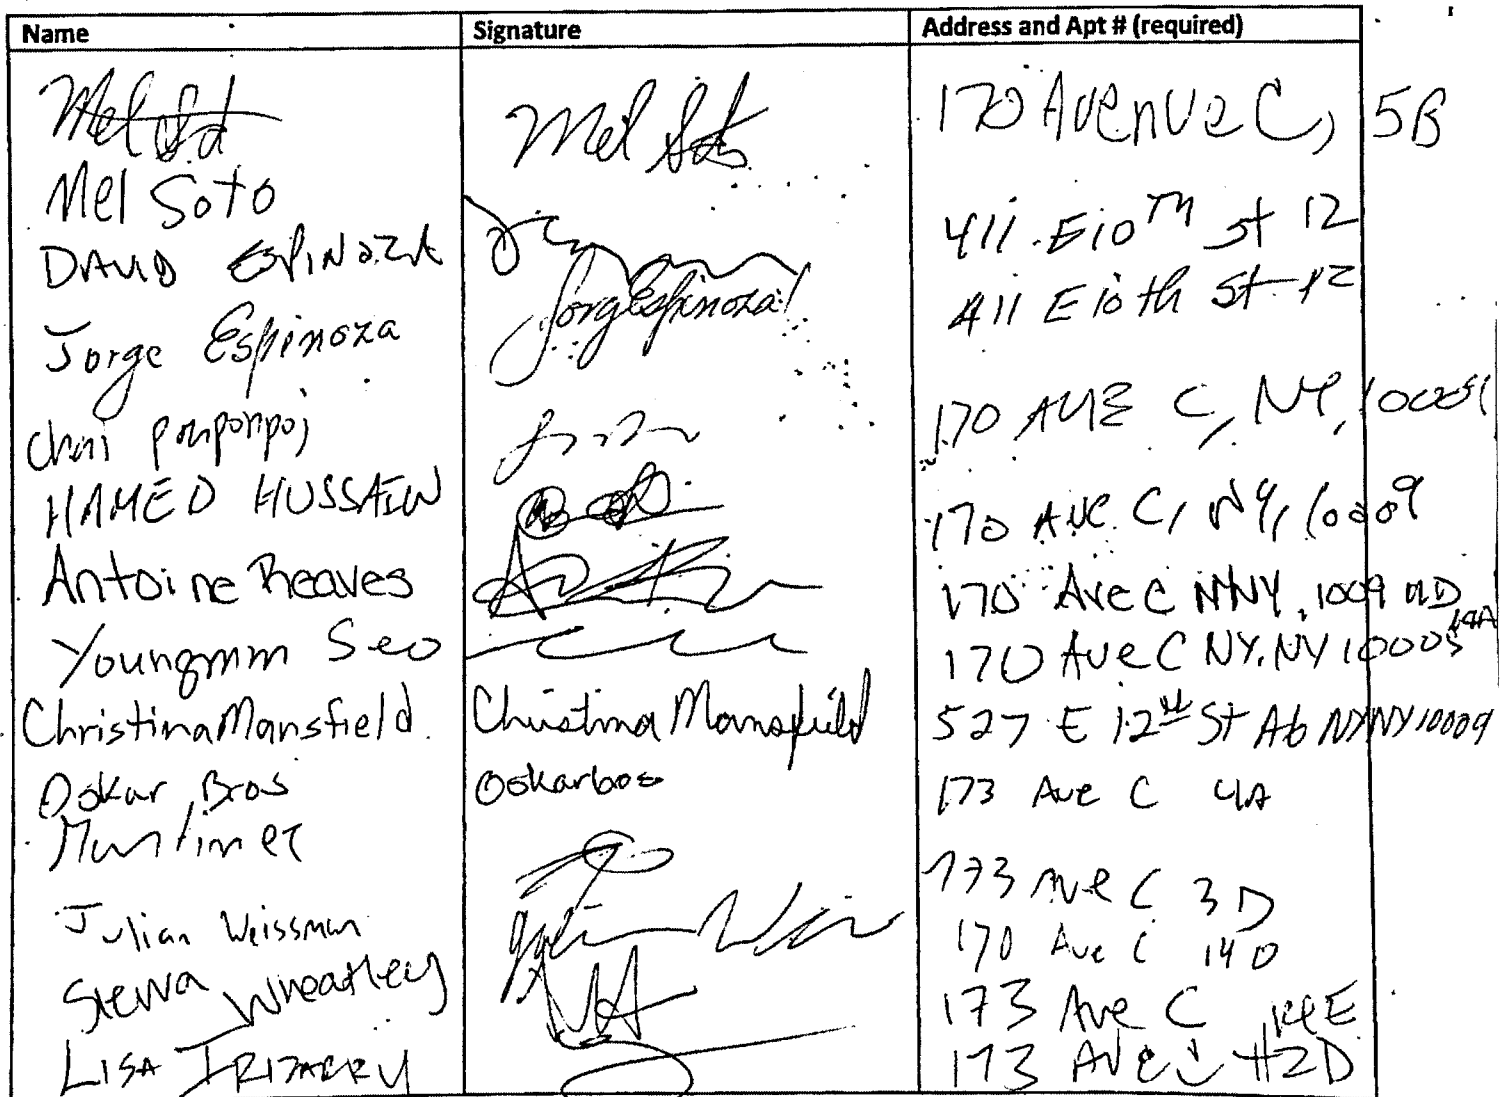 Name Signature Address and Apt # (required)
Mel Sot Mel Soto 170 Avenue C, 5B
Mel Soto
DAVID ESPINOZA 411 E 10TH St 12
Jorge Espinoza Jorg Espinoza 411 E 10th St 12
Chai 170 AVE C, NY, 10009
HAMED HUSSAIN 170 Ave C, NY, 10009
Antoine Reaves 170 Ave C NNY, 1009
Youngmm Seo 170 Ave C NY, NY 10009 14A
Christina Mansfield Christina Mansfield 527 E 12th St A6 NY NY 10009
Oskar Bros Oskarbos 173 Ave C 4A
173 Ave C 3D
Julian Weissman 170 Ave C 14D
Sierra Wheatley 173 Ave C
LISA IRIZARRY 173 AVE C #2D